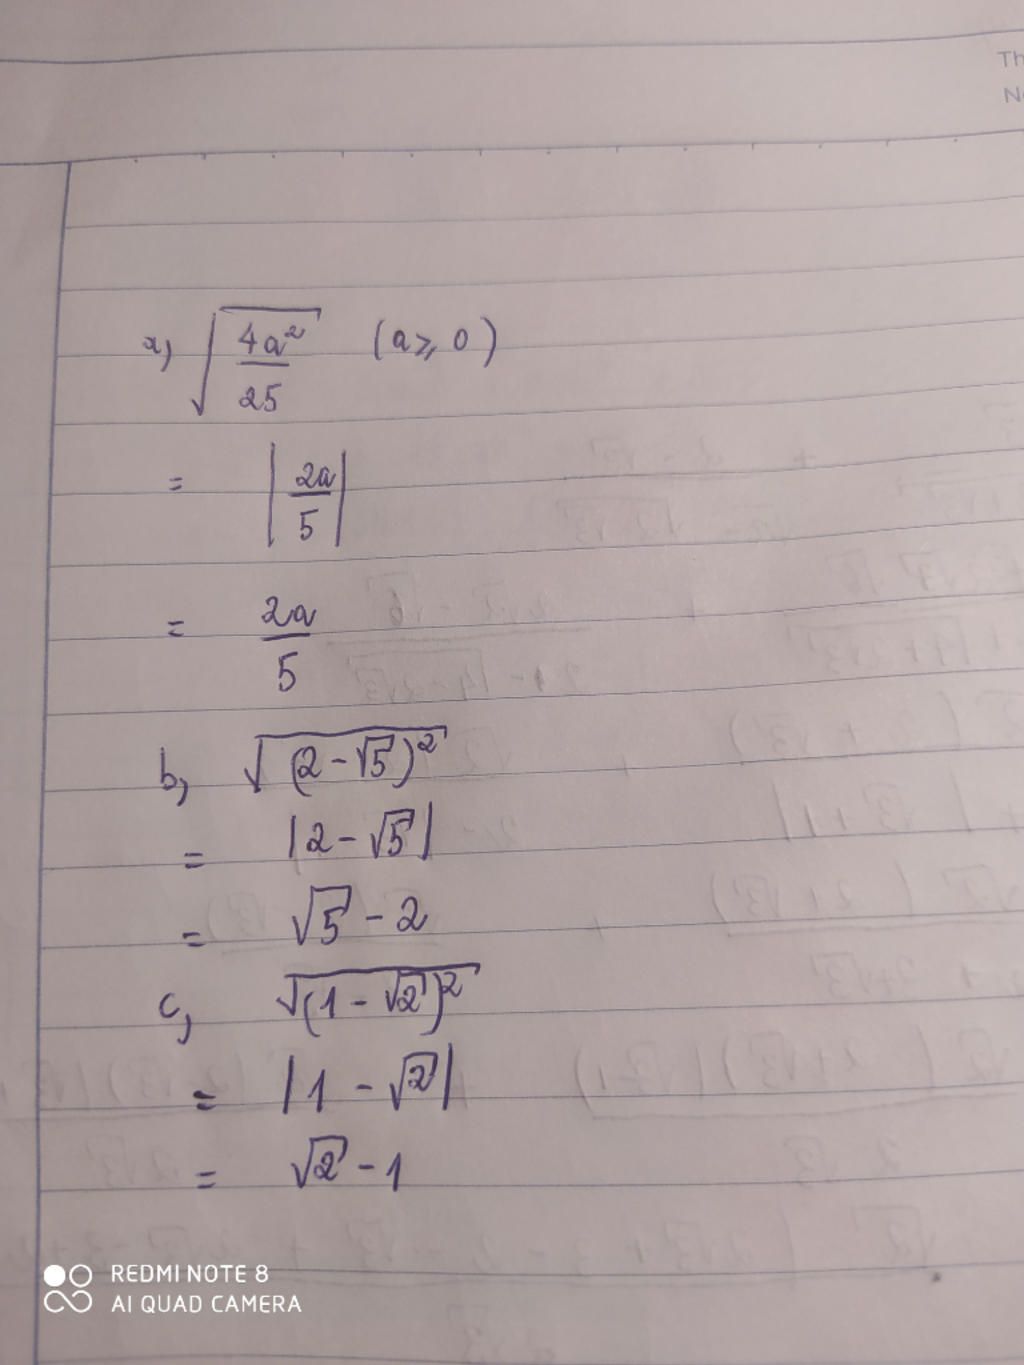 Th
N
a, √(4a²/25) (a ⩾ 0)
= |2a/5|
= 2a/5
b, √((2-√5)²)
= |2-√5|
= √5 - 2
c, √((1-√2)²)
= |1 - √2|
= √2 - 1
REDMI NOTE 8
AI QUAD CAMERA